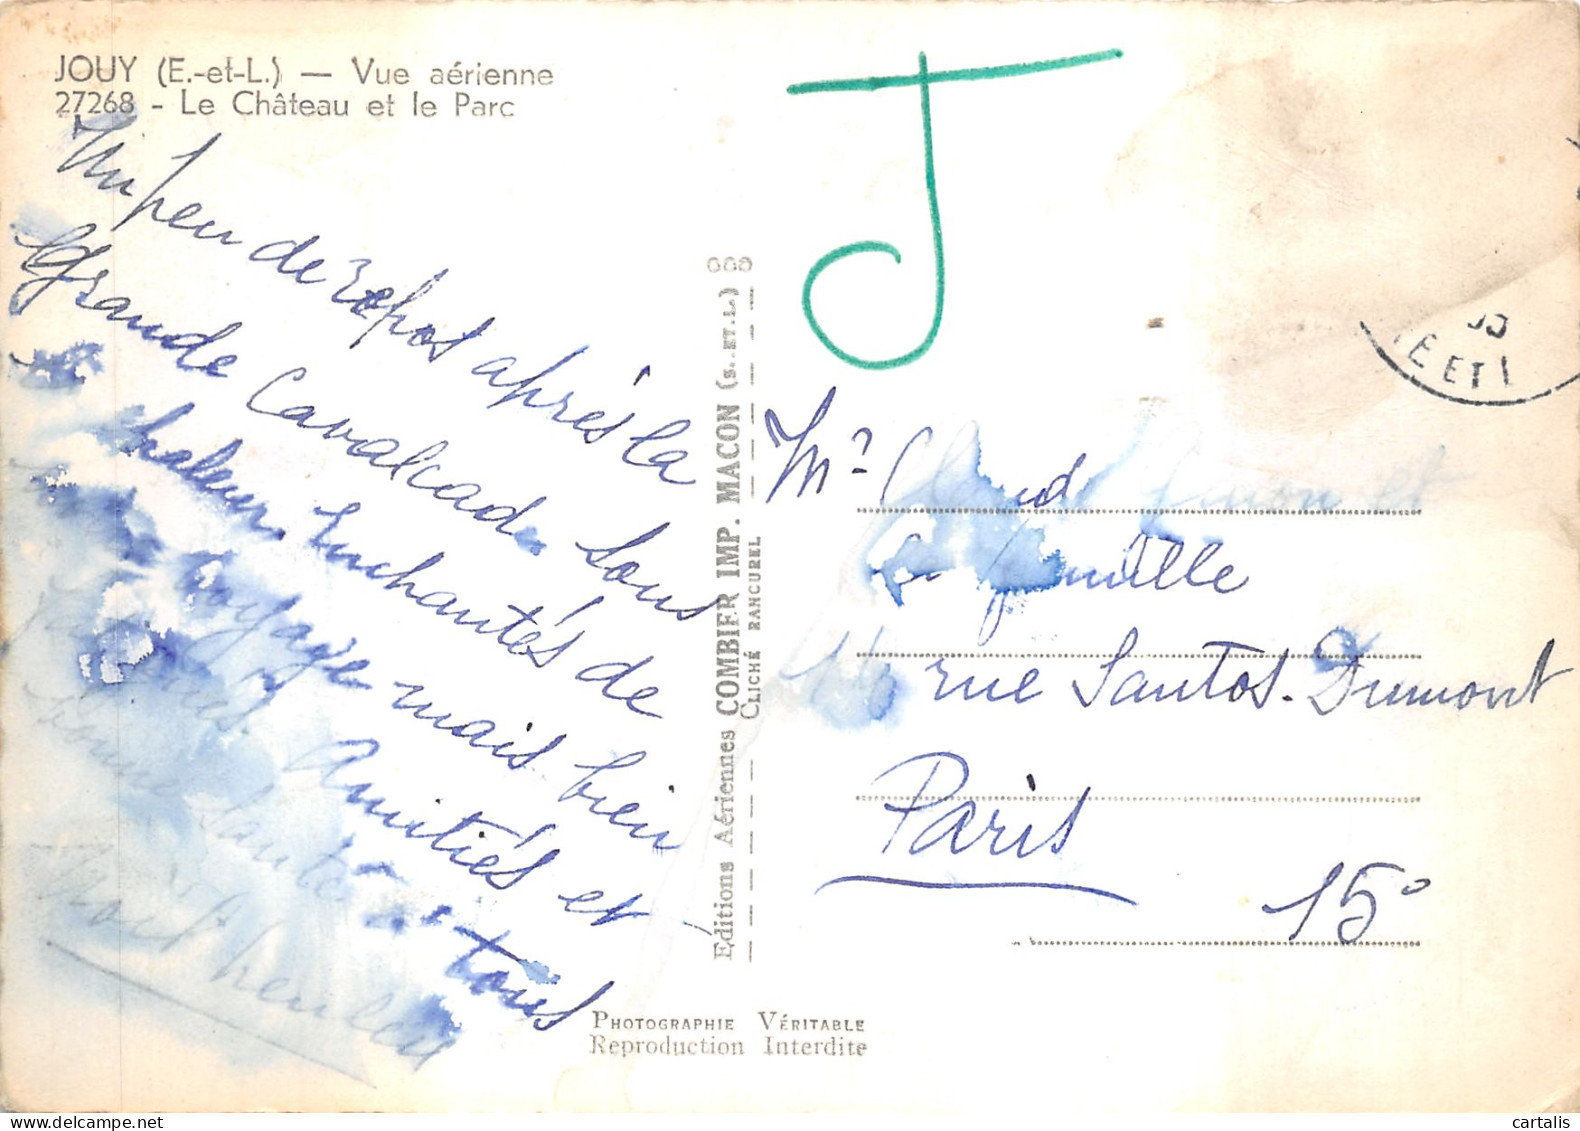 JOUY (E.-et-L.) — Vue aérienne
27268 - Le Château et le Parc
Un peu de repos après la
Grande Cavalcade sous
chaleur. Enchantés de
voyage mais bien
Amitiés et
bonne santé à tous
J
000
Editions Aériennes COMBIER IMP. MACON (S.-ET-L.)
CLICHÉ RANCUREL
E ET L
Mr Claude Simon et
famille
rue Santos-Dumont
Paris
15e
PHOTOGRAPHIE VÉRITABLE
Reproduction Interdite
cartalis